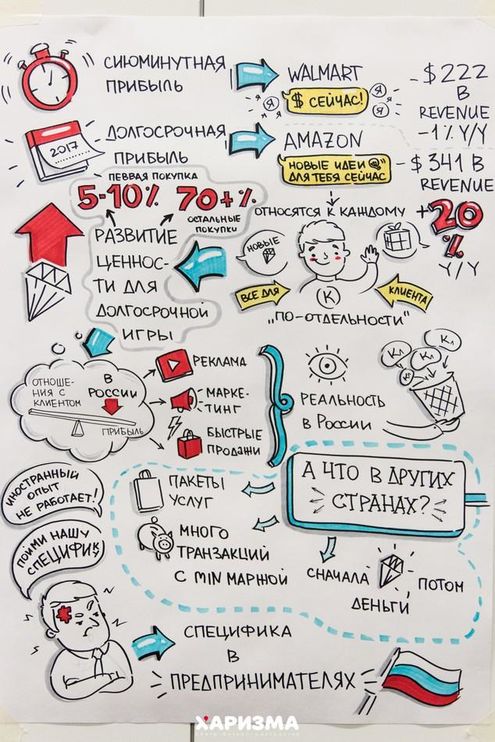 СИЮМИНУТНАЯ
ПРИБЫЛЬ
WALMART
$ СЕЙЧАС!
- $ 222
В
REVENUE
-1% Y/Y
2017
ДОЛГОСРОЧНАЯ
ПРИБЫЛЬ
AMAZON
НОВЫЕ ИДЕИ
ДЛЯ ТЕБЯ СЕЙЧАС
- $ 341 В
REVENUE
+20
%
Y/Y
ПЕРВАЯ ПОКУПКА
5-10% 70+%
ОСТАЛЬНЫЕ
ПОКУПКИ
РАЗВИТИЕ
ЦЕННОС-
ТИ ДЛЯ
ДОЛГОСРОЧНОЙ
ИГРЫ
ОТНОСЯТСЯ К КАЖДОМУ
НОВЫЕ
ВСЕ ДЛЯ
К
КЛИЕНТА
"ПО-ОТДЕЛЬНОСТИ"
ОТНОШЕ-
НИЯ С
КЛИЕНТОМ
В
РОССИИ
ПРИБЫЛЬ
РЕКЛАМА
МАРКЕ-
ТИНГ
БЫСТРЫЕ
ПРОДАЖИ
РЕАЛЬНОСТЬ
В РОССИИ
КЛ
КЛ
КЛ
ИНОСТРАННЫЙ
ОПЫТ
НЕ РАБОТАЕТ!
ПОЙМИ НАШУ
СПЕЦИФИК
ПАКЕТЫ
УСЛУГ
МНОГО
ТРАНЗАКЦИЙ
С MIN МАРЖОЙ
А ЧТО В ДРУГИХ
СТРАНАХ?
СНАЧАЛА
ПОТОМ
ДЕНЬГИ
СПЕЦИФИКА
В
ПРЕДПРИНИМАТЕЛЯХ
ХАРИЗМА